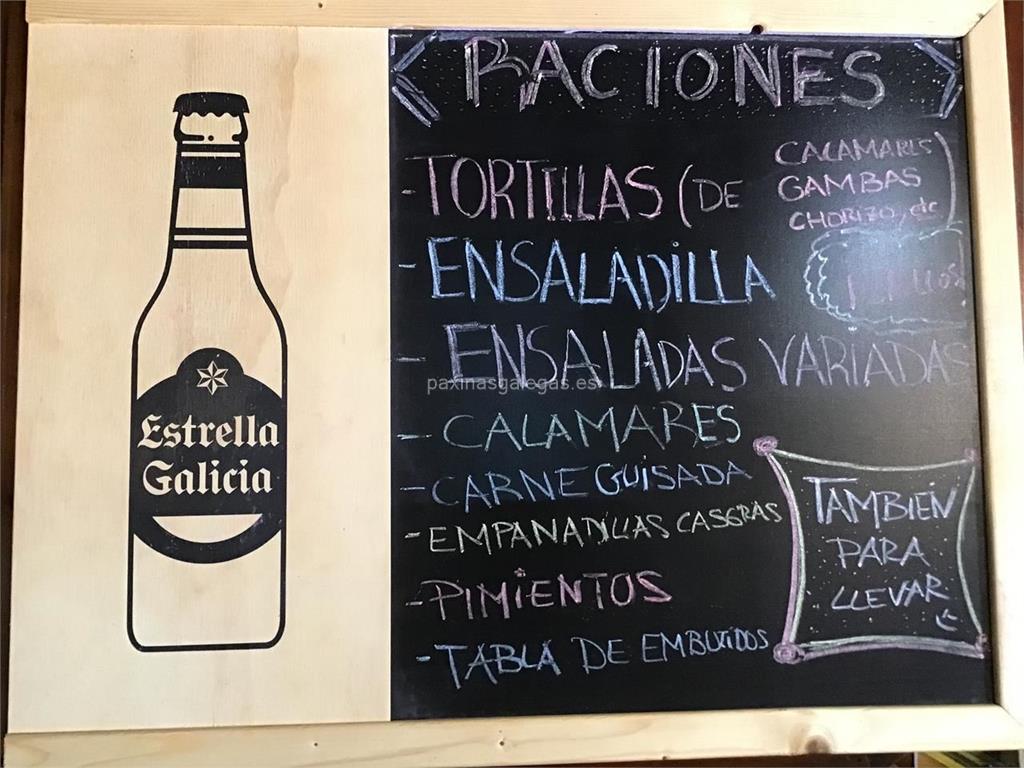 RACIONES
- TORTILLAS (DE CALAMARES
GAMBAS
CHORIZO, etc)
- ENSALADILLA
- ENSALADAS VARIADAS
- CALAMARES
- CARNE GUISADA
- EMPANADILLAS CASERAS
- PIMIENTOS
- TABLA DE EMBUTIDOS
TAMBIEN
PARA
LLEVAR
Estrella
Galicia
paxinasgalegas.es